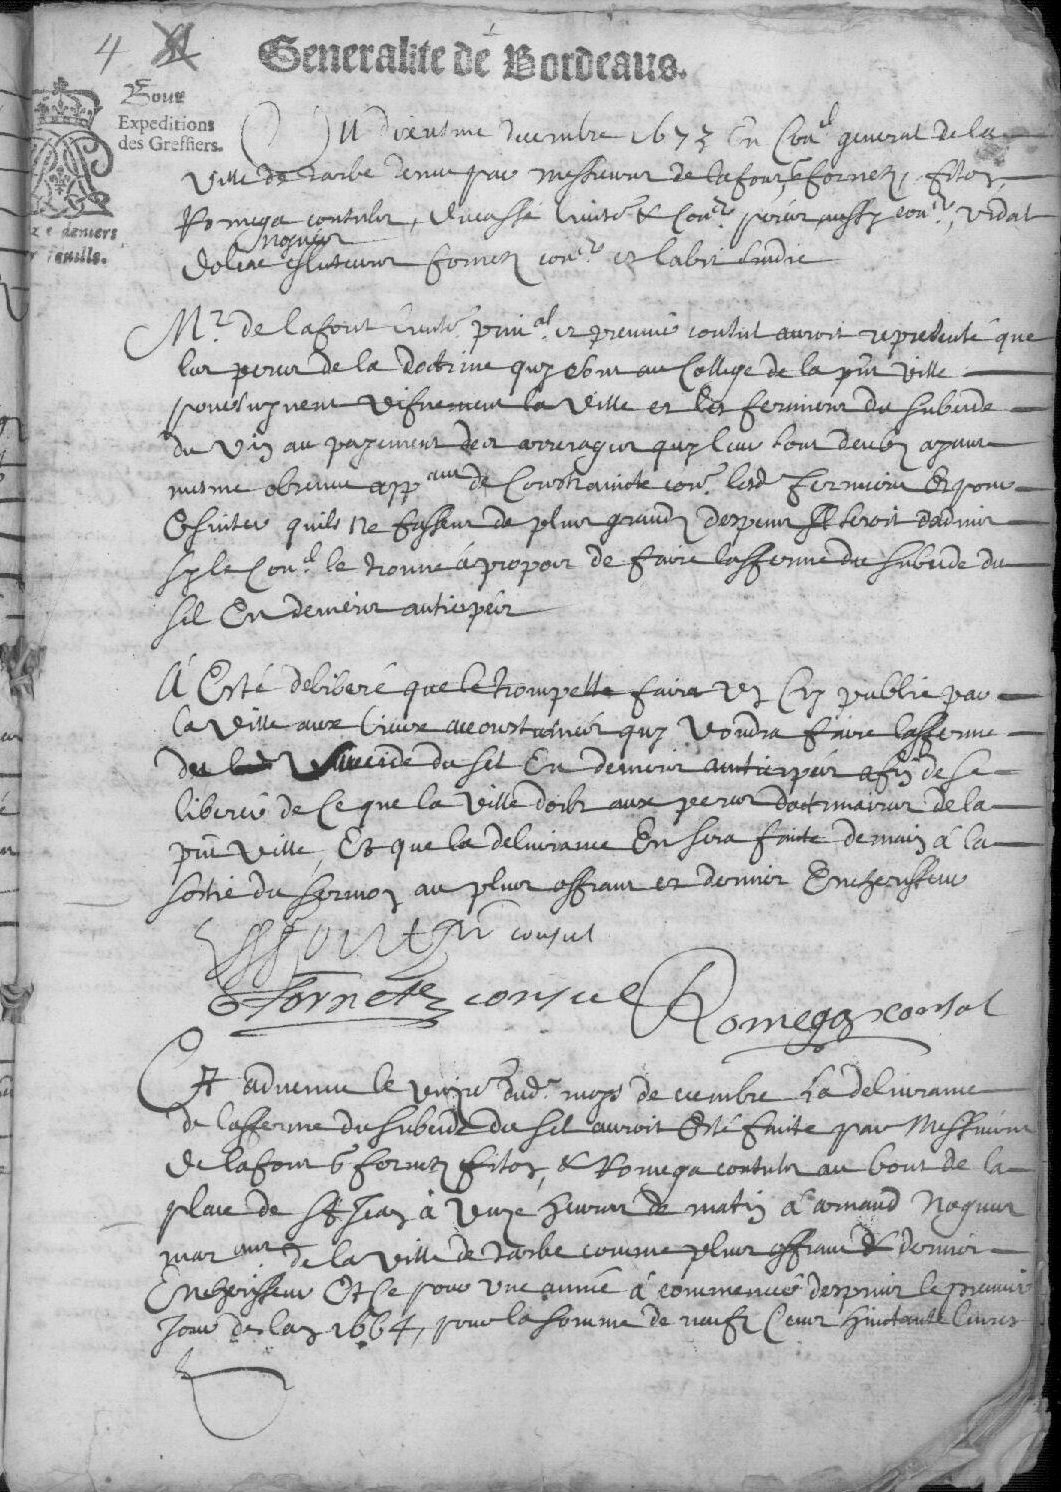 4
Generalité de Bordeaus.
Pour
Expeditions
des Greffiers.
deniers
feuille.
Du dixiesme decembre 1673 En Con.el general de la
ville de tarbe tenue par messieurs de lafont, fornetz, fitoy,
Romega consulz, ducassé Con.r aussy con.r, vidal
noguer
doleac esluteurs fornetz con.r et labit sindic
M.r de lafont prin.al et premier consul auroit representé que
les peres de la doctrine quy sont au College de la pñt ville
poursuyvent vifvement la ville et les fermiers du subcide
du vin au payement des arrerages quy leur sont deubz ayant
mesme obtenu app.ant de Constrainte con.e lesd fermiers Et pour
Esviter quils ne fassent de plus grandz despens Il seroit dadvis
sy le Con.el le trouve á propos de faire lafferme du subcide du
sel En deniers anticipés
A Esté deliberé que le trompette faira un Cry public par
la ville aux lieux accoustumés quy voudra faire lafferme
du subcide du sel En deniers anticipés afin de se
liberer de Ce que la ville doibt aux peres doctrinaires de la
pñt ville, Et que la delivrance En sera faite demain á la
sortie du sermon au plus offrant et dernier Encherisseur
consul
Fornetz consul Romega consol
Et advenu le dud. moys decembre La delivrance
de lafferme du subcide du sel auroit Esté faite par Messieurs
de lafont fornetz fitoy, & Romega consulz au bout de la
place de St Jean á unze heures de matin á arnaud Noguer
mar.ant de la ville de tarbe comme plus offrant & dernier
Encherisseur Et Ce pour une année á commencer despuis le premier
Jour de lan 1664, pour la somme de neufz Cens huictante livres